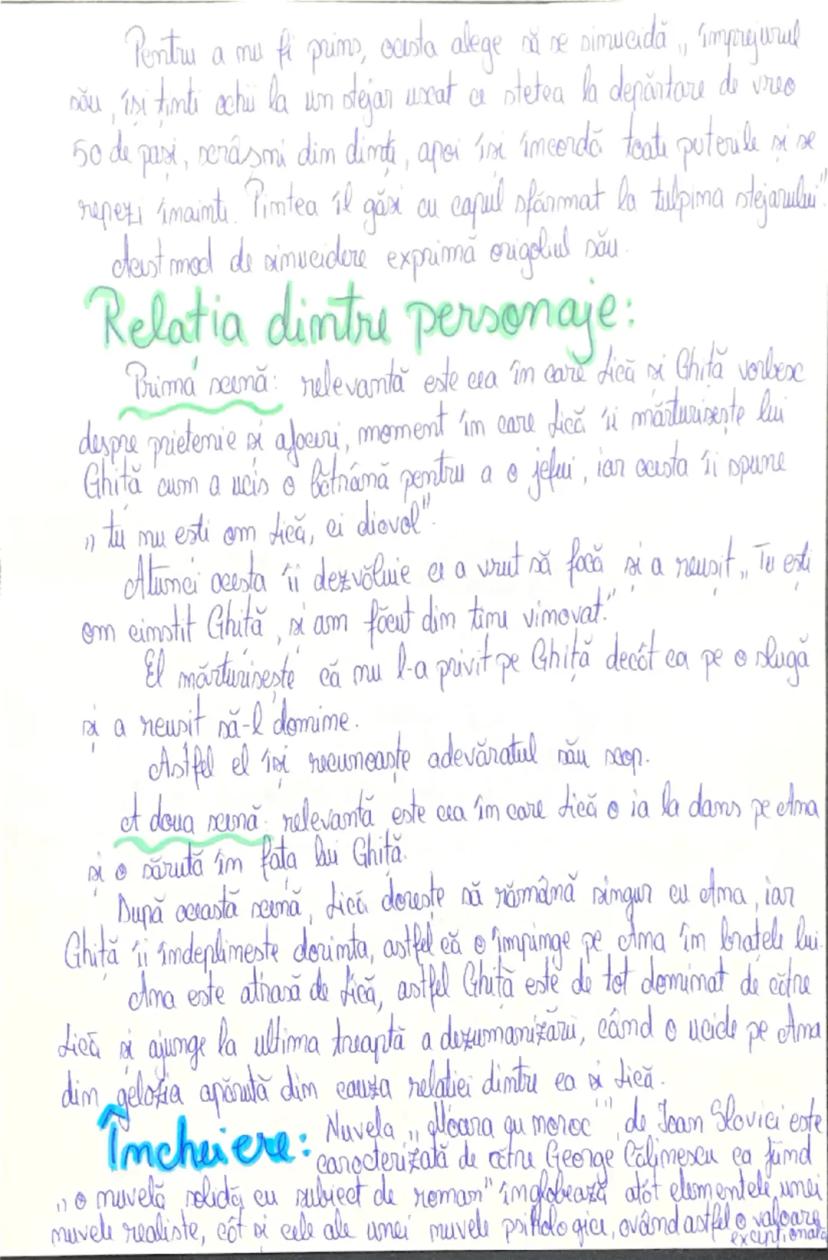 Pentru a nu fi prins, acesta alege să se sinucidă „împrejurul
său, își ținti ochii la un stejar uscat ce stetea la depărtare de vreo
50 de pași, scrâșni din dinți, apoi își încordă toate puterile și se
repezi înainte. Pintea îl găsi cu capul sfărmat la tulpina stejarului".
Acest mod de sinucidere exprimă orgoliul său.
Relația dintre personaje:
Prima scenă: relevantă este cea în care Lică și Ghiță vorbesc
despre prietenie și afaceri, moment în care Lică îi mărturisește lui
Ghiță cum a ucis o bătrână pentru a o jefui, iar acesta îi spune
„tu nu ești om Lică, ci diavol".
Atunci acesta îi dezvăluie ce a vrut să facă și a reușit „Tu ești
om cinstit Ghiță, și am făcut din tine vinovat."
El mărturisește că nu l-a privit pe Ghiță decât ca pe o slugă
și a reușit să-l domine.
Astfel el își recunoaște adevăratul său scop.
A doua scenă relevantă este cea în care Lică o ia la dans pe Ana
și o sărută în fața lui Ghiță.
După această scenă, Lică dorește să rămână singur cu Ana, iar
Ghiță îi îndeplinește dorința, astfel că o împinge pe Ana în brațele lui.
Ana este atrasă de Lică, astfel Ghiță este de tot dominat de către
Lică și ajunge la ultima treaptă a dezumanizării, când o ucide pe Ana
din gelozia apărută din cauza relației dintre ea și Lică.
Încheiere: Nuvela „Moara cu noroc", de Ioan Slavici este
caracterizată de către George Călinescu ca fiind
„o nuvelă solidă cu subiect de roman" înglobează atât elementele unei
nuvele realiste, cât și cele ale unei nuvele psihologice, având astfel o valoare
excepțională